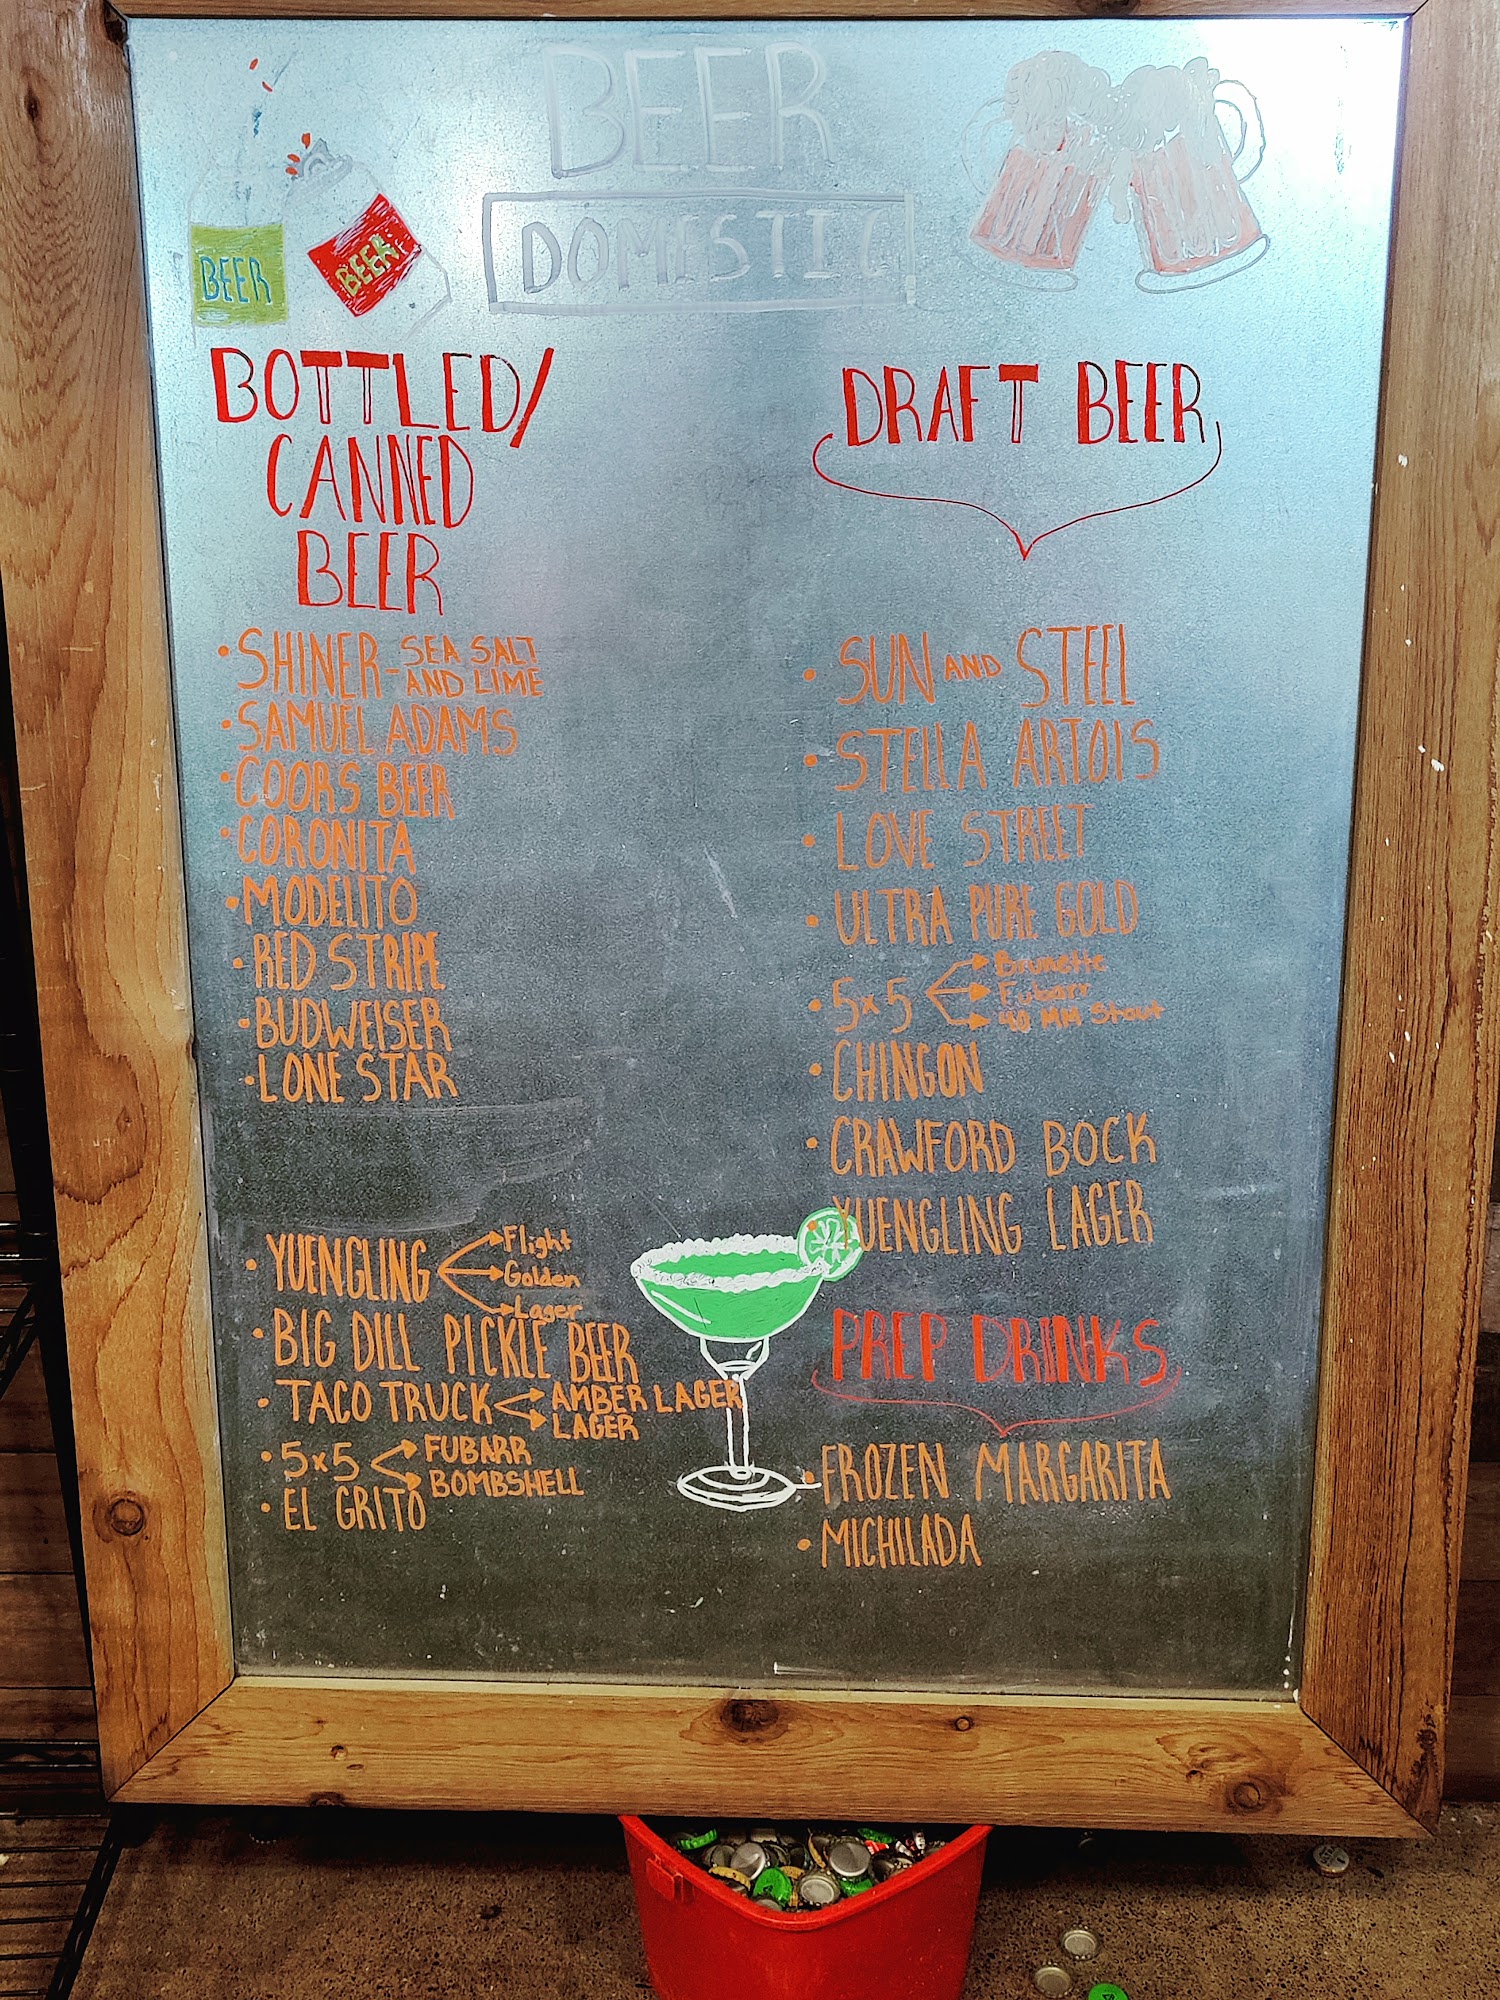 BEER
DOMESTIC
BEER
BEER
BOTTLED/
CANNED
BEER
• SHINER - SEA SALT
AND LIME
• SAMUEL ADAMS
• COORS BEER
• CORONITA
• MODELITO
• RED STRIPE
• BUDWEISER
• LONE STAR
• YUENGLING Flight
Golden
Lager
• BIG DILL PICKLE BEER
• TACO TRUCK AMBER LAGER
LAGER
• 5x5 FUBARR
BOMBSHELL
• EL GRITO
DRAFT BEER
• SUN AND STEEL
• STELLA ARTOIS
• LOVE STREET
• ULTRA PURE GOLD
• 5x5 Brunette
Fubarr
40 MM Stout
• CHINGON
• CRAWFORD BOCK
• YUENGLING LAGER
PREP DRINKS
• FROZEN MARGARITA
• MICHILADA